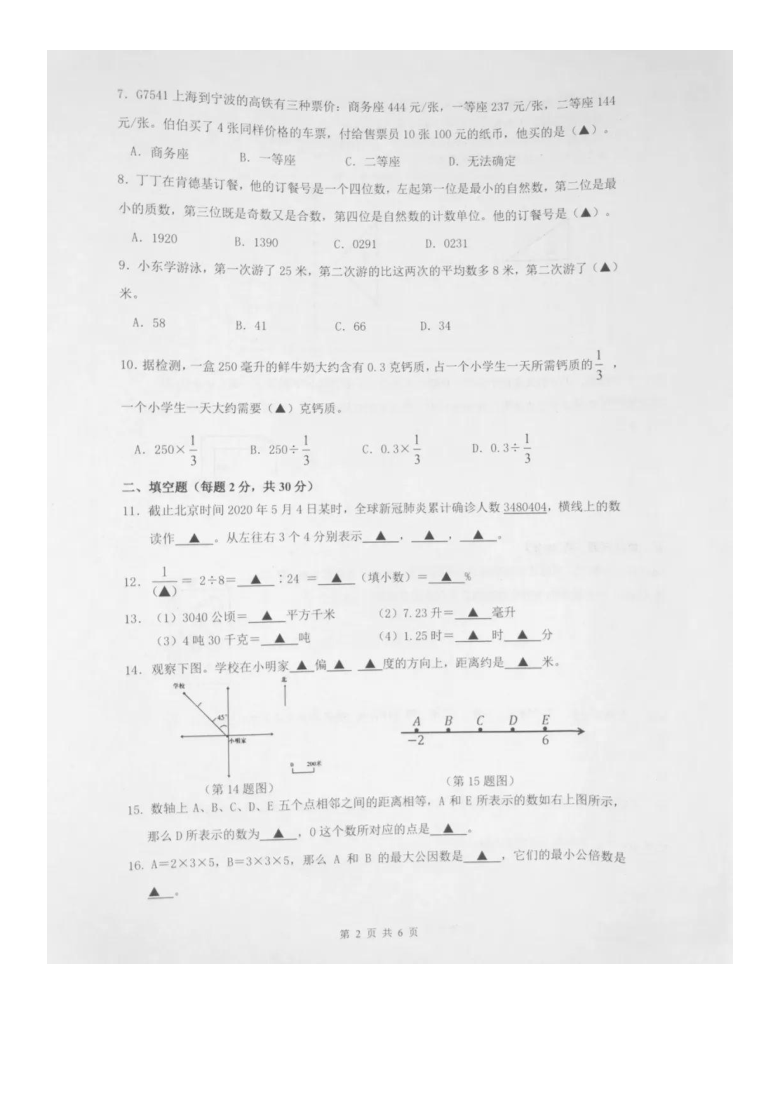 7. G7541 上海到宁波的高铁有三种票价：商务座 444 元/张，一等座 237 元/张，二等座 144
元/张。伯伯买了 4 张同样价格的车票，付给售票员 10 张 100 元的纸币，他买的是（▲）。
A. 商务座 B. 一等座 C. 二等座 D. 无法确定
8. 丁丁在肯德基订餐，他的订餐号是一个四位数，左起第一位是最小的自然数，第二位是最
小的质数，第三位既是奇数又是合数，第四位是自然数的计数单位。他的订餐号是（▲）。
A. 1920 B. 1390 C. 0291 D. 0231
9. 小东学游泳，第一次游了 25 米，第二次游的比这两次的平均数多 8 米，第二次游了（▲）
米。
A. 58 B. 41 C. 66 D. 34
10. 据检测，一盒 250 毫升的鲜牛奶大约含有 0.3 克钙质，占一个小学生一天所需钙质的 1/3 ，
一个小学生一天大约需要（▲）克钙质。
A. 250×1/3 B. 250÷1/3 C. 0.3×1/3 D. 0.3÷1/3
二、填空题（每题 2 分，共 30 分）
11. 截止北京时间 2020 年 5 月 4 日某时，全球新冠肺炎累计确诊人数 3480404，横线上的数
读作 ▲ 。从左往右 3 个 4 分别表示 ▲ ， ▲ ， ▲ 。
12. 1/(▲) = 2÷8= ▲ ：24 = ▲ （填小数）= ▲ %
13. （1）3040 公顷= ▲ 平方千米 （2）7.23 升= ▲ 毫升
（3）4 吨 30 千克= ▲ 吨 （4）1.25 时= ▲ 时 ▲ 分
14. 观察下图。学校在小明家 ▲ 偏 ▲ ▲ 度的方向上，距离约是 ▲ 米。
学校 北
45°
小明家
0 200米
A B C D E
−2 6
（第 14 题图） （第 15 题图）
15. 数轴上 A、B、C、D、E 五个点相邻之间的距离相等，A 和 E 所表示的数如右上图所示，
那么 D 所表示的数为 ▲ ，0 这个数所对应的点是 ▲ 。
16. A=2×3×5，B=3×3×5，那么 A 和 B 的最大公因数是 ▲ ，它们的最小公倍数是
▲ 。
第 2 页 共 6 页